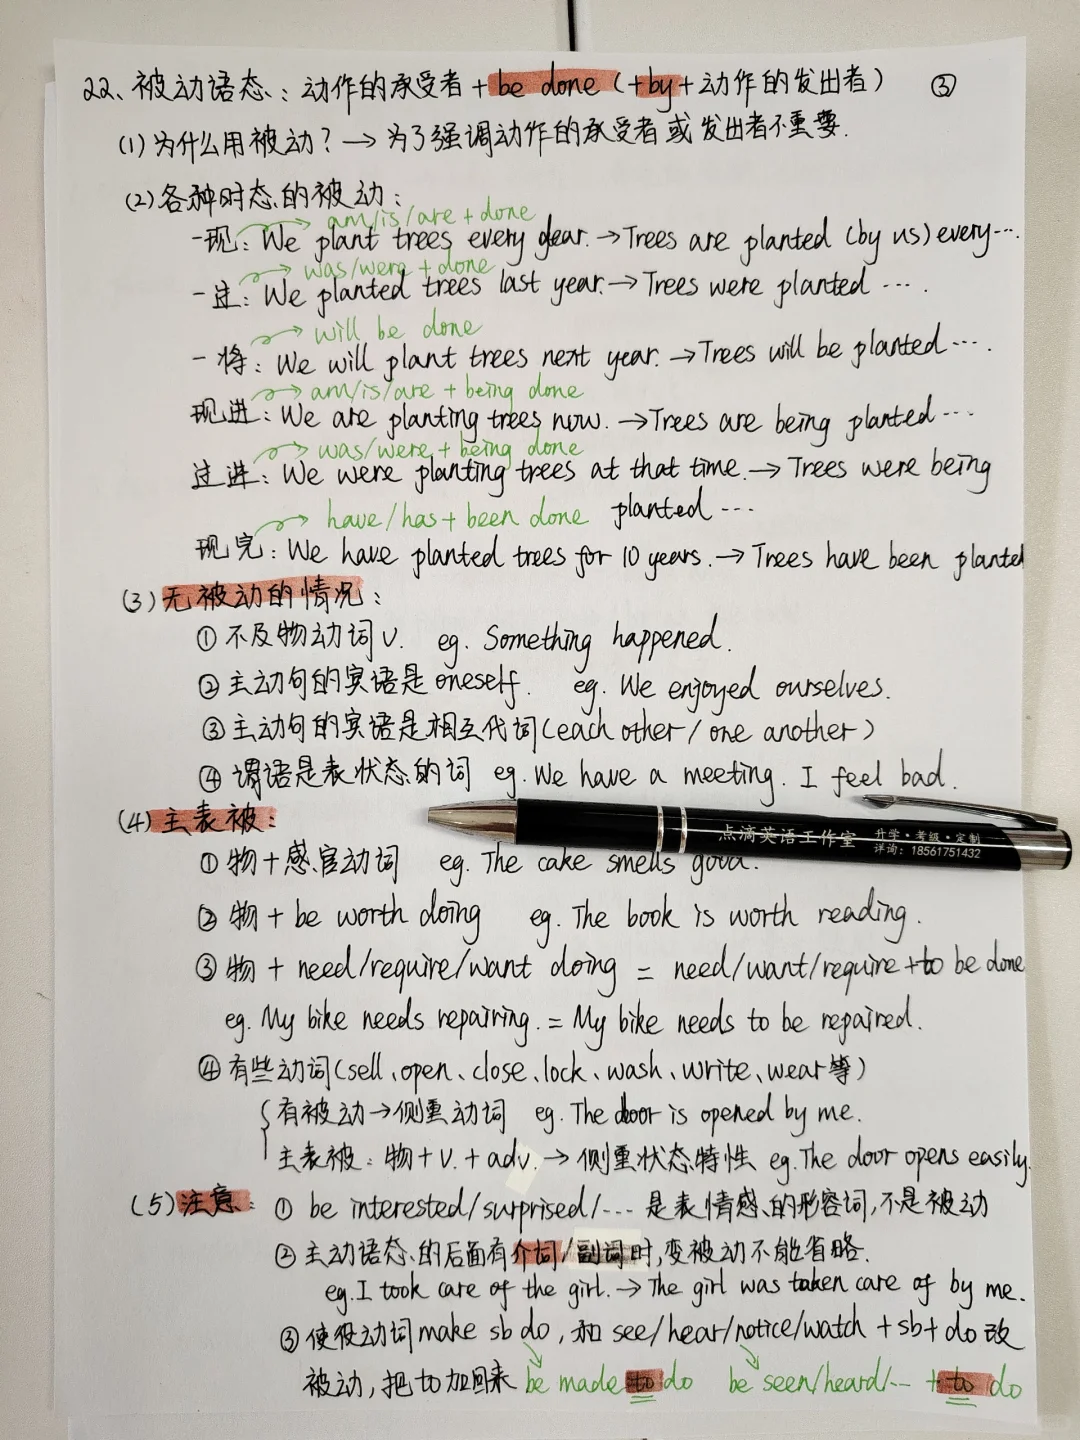 22、被动语态：动作的承受者+be done (+by+动作的发出者) ③
(1)为什么用被动？→为了强调动作的承受者或发出者不重要.
(2)各种时态的被动：
am/is/are + done
一现：We plant trees every year.→Trees are planted (by us) every….
was/were + done
一过：We planted trees last year.→Trees were planted ….
will be done
一将：We will plant trees next year.→Trees will be planted….
am/is/are + being done
现进：We are planting trees now.→Trees are being planted…
was/were + being done
过进：We were planting trees at that time.→Trees were being
planted…
have/has+been done
现完：We have planted trees for 10 years.→Trees have been planted
(3)无被动的情况：
①不及物动词v. eg. Something happened.
②主动句的宾语是oneself. eg. We enjoyed ourselves.
③主动句的宾语是相互代词(each other/one another)
④谓语是表状态的词 eg. We have a meeting. I feel bad.
(4)主表被：
点滴英语工作室 升学·考级·定制
详询：18561751432
①物+感官动词 eg. The cake smells good.
②物+be worth doing eg. The book is worth reading.
③物+need/require/want doing = need/want/require+to be done
eg. My bike needs repairing.=My bike needs to be repaired.
④有些动词(sell、open、close、lock、wash、write、wear等)
有被动→侧重动词 eg. The door is opened by me.
主表被：物+v.+adv.→侧重状态特性 eg. The door opens easily.
(5)注意：①be interested/surprised/…是表情感的形容词,不是被动
②主动语态的后面有介词/副词时,变被动不能省略.
eg. I took care of the girl.→The girl was taken care of by me.
③使役动词make sb do,和see/hear/notice/watch+sb+do改
被动,把to加回来 be made to do be seen/heard/…+to do